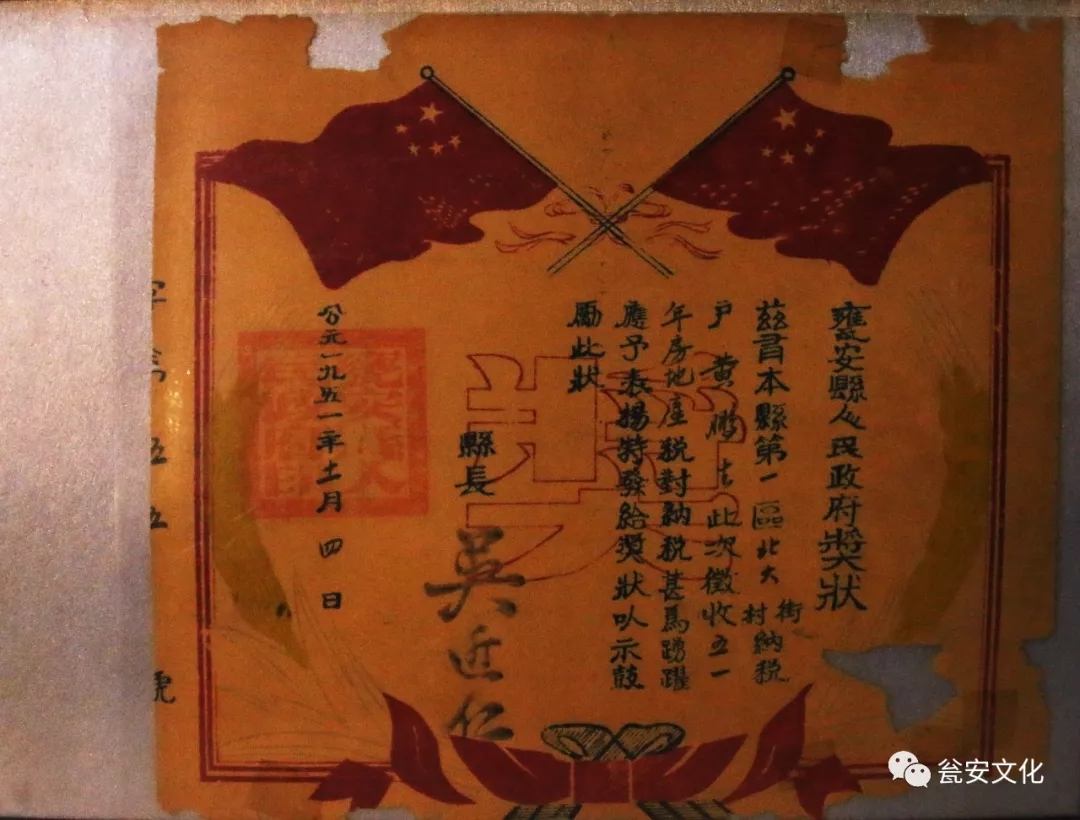 甕安縣人民政府獎狀
茲有本縣第一區北大街村納税
户黄鵬 此次徵收五一
年房地産税對納税甚為踴躍
應予表揚特發給獎狀以示鼓
勵此狀
縣長
吳近仁
公元一九五一年十一月四日
字第 五五號
獎狀
瓮安文化